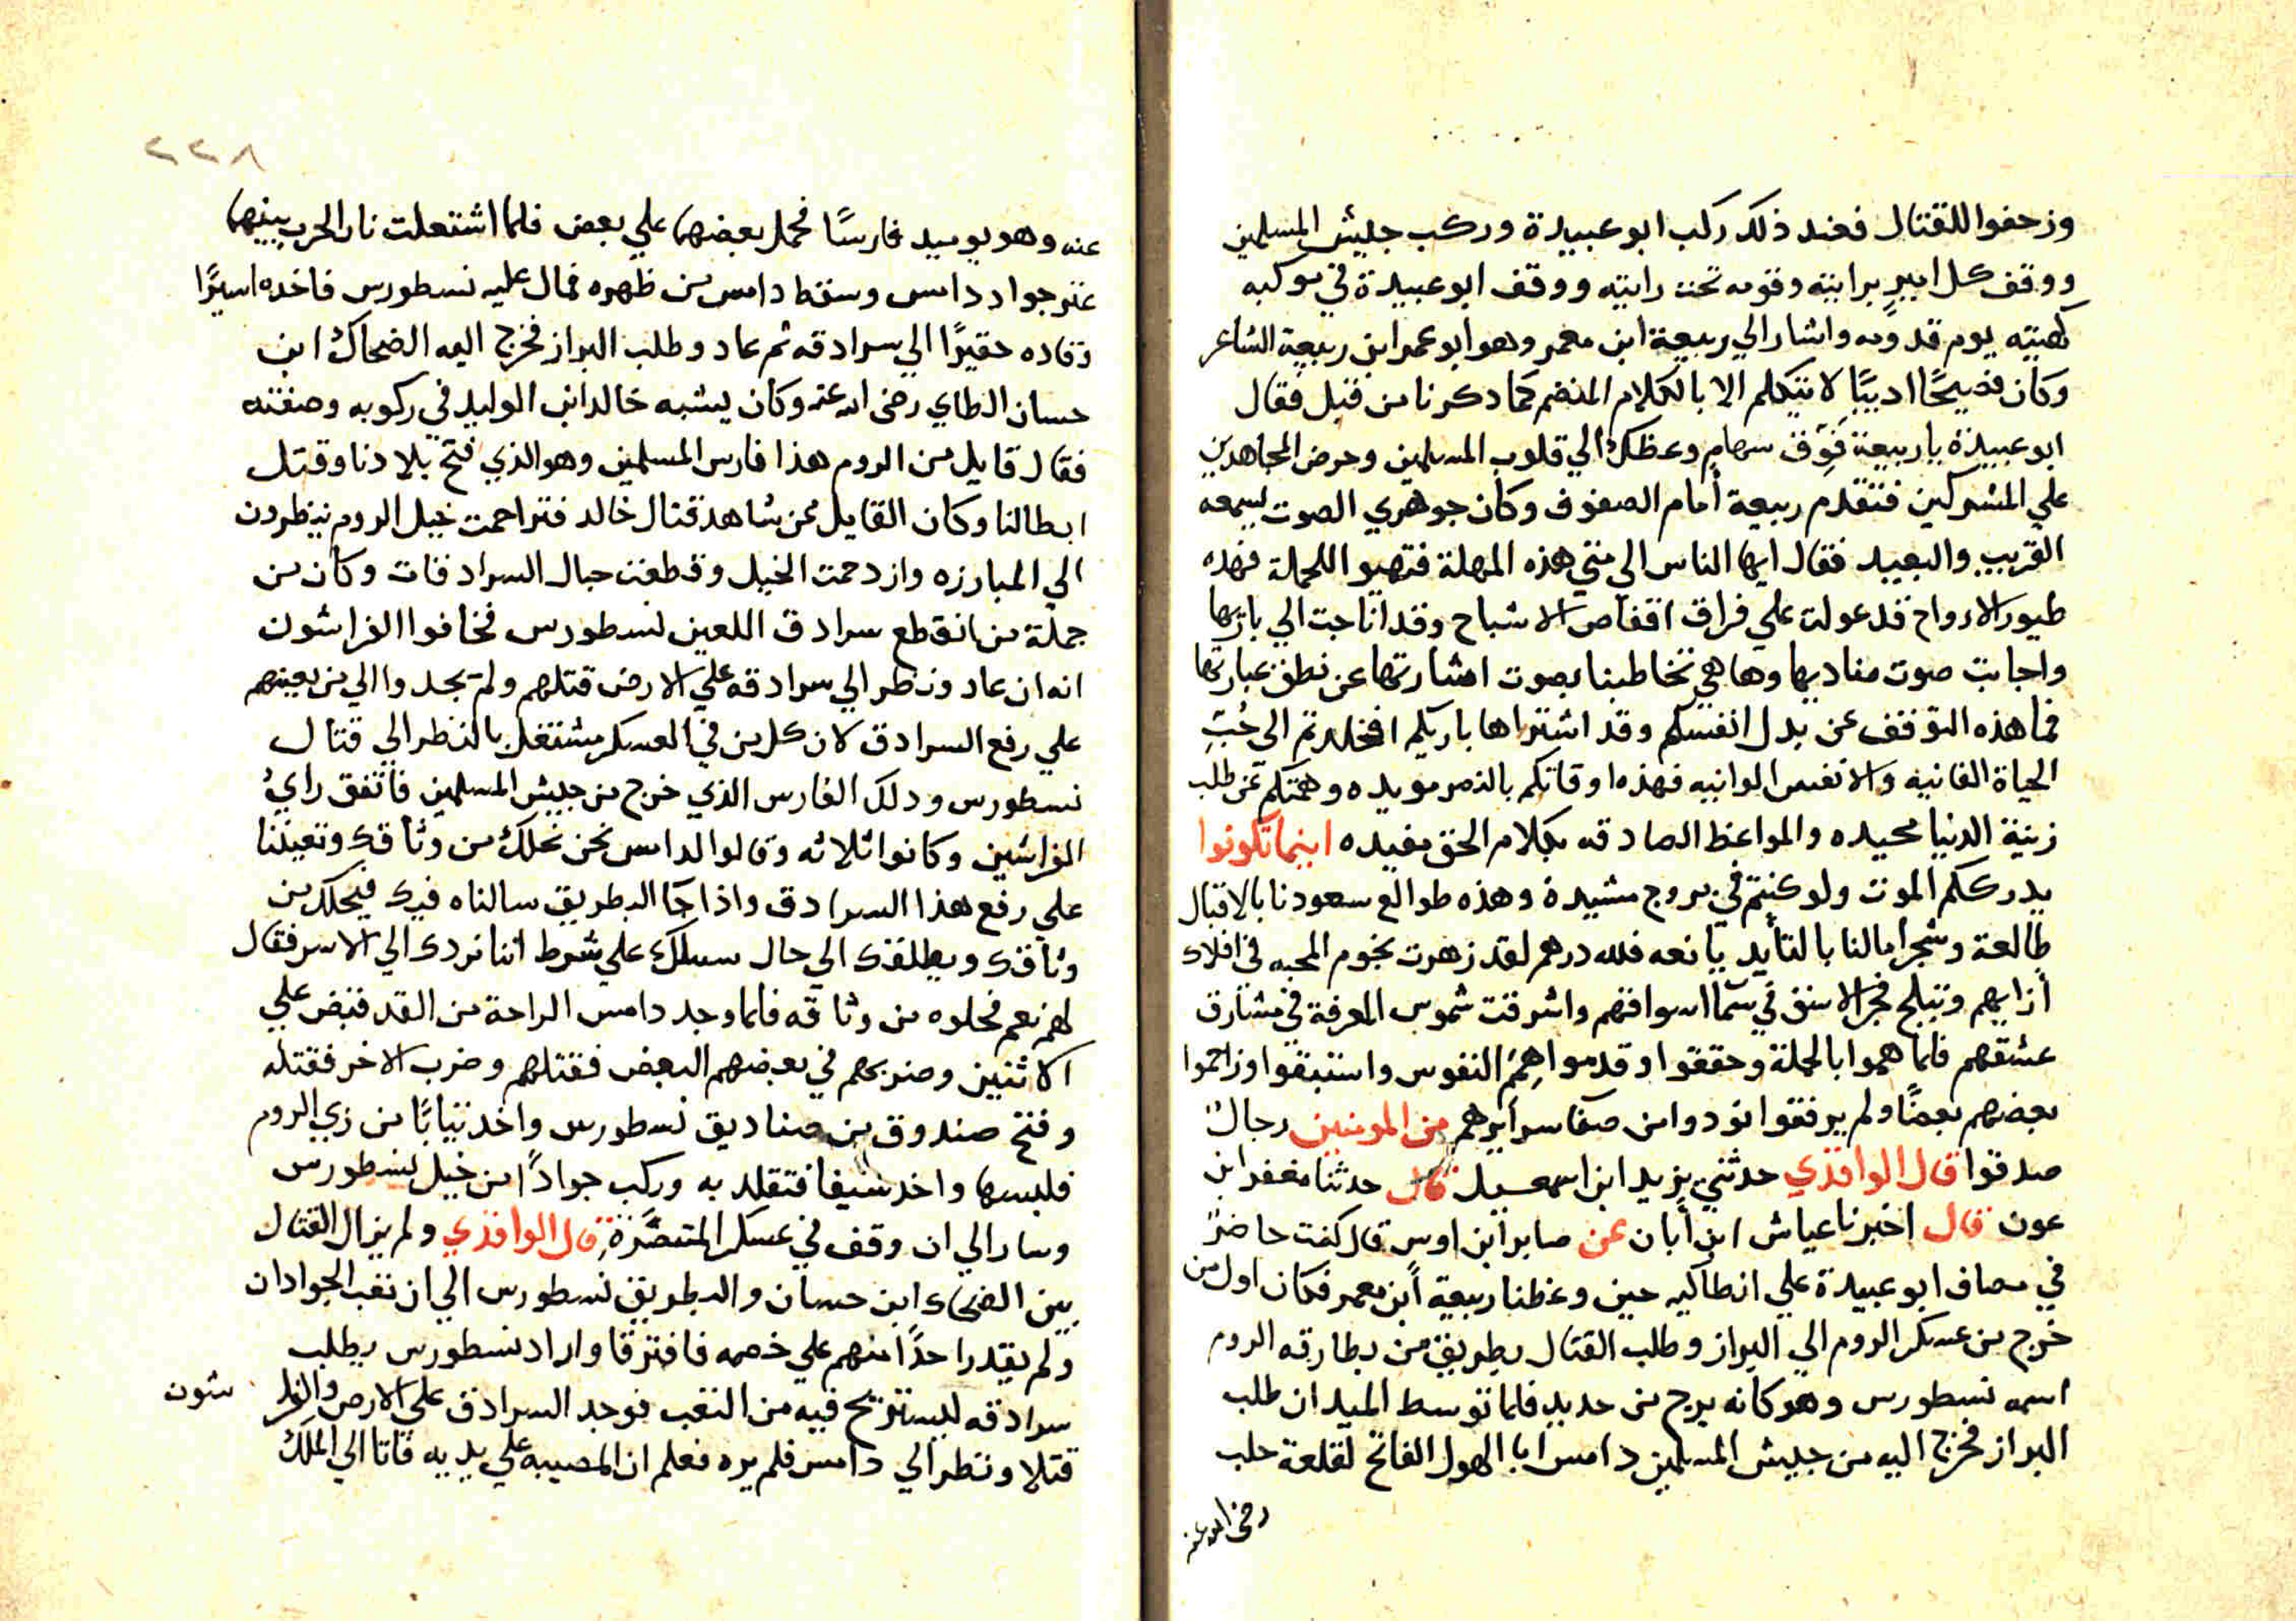 وزحفوا للقتال فعند ذلك ركب ابو عبيدة وركب جيش المسلمين
ووقف كل امير برايته وقومه تحت رايته ووقف ابو عبيدة في موكبه
كهيته يوم قدومه واشار الي ربيعة ابن معمر وهو ابو عمر ابن ربيعة الشاعر
وكان فصيحًا اديبًا لا يتكلم الا بالكلام المنضم كما دكرنا من قبل فقال
ابو عبيدة يا ربيعة فَوِّق سهام وعظك الي قلوب المسلمين وحرض المجاهدين
علي المشركين فتقدم ربيعة أمام الصفوف وكان جوهري الصوت يسمعه
القريب والبعيد فقال ايها الناس الي متي هذه المهلة فتهيو اللحملة فهده
طيور الارواح قد عولت علي فراق اقفاص الاشباح وقد اناجت الي باريها
واجابت صوت مناديها وها هي تخاطبنا بصوت اشارتها عن نطق عبارتها
فما هذه التوقف عن بدل انفسكم وقد اشتراها باريكم افخلدتم الي حُبّ
الحياة الفانيه والانفس الوانيه فهذه اوقاتكم بالنصر مويده وهمتكم عن طلب
زينة الدنيا محيده والمواعظ الصادقه بكلام الحق مفيده اينما تكونوا
يدرككم الموت ولو كنتم في بروج مشيدة وهذه طوالع سعودنا بالاقبال
طالعة وشجر امالنا بالتأيد يانعه فلله درهم لقد زهرت نجوم المحبه في افلاك
أزايهم وتبلج فجر الاسنق في سمآ اسوافهم واشرقت شموس المعرفة في مشارق
عشقهم فلما هموا بالحملة وحققوا وقدموا هِمَمْ النفوس واستبقوا وزاحموا
بعضهم بعضًا ولم يرفقوا نودوا من صفا سرآيرهم من المومنين رجالٌ
صدقوا قال الواقدي حدثني يزيد ابن اسمعيل قال حدثنا مغفر ابن
عون قال اخبرنا عياش ابن أبان عن صابر ابن اوس قال كنت حاضرً
في مصاف ابو عبيدة علي انطاكيه حين وعظنا ربيعة أبن معمر فكان اول من
خرج من عسكر الروم الي البراز وطلب القتال بطريق من بطارقه الروم
اسمه نسطورس وهو كانه برج من حديد فلما توسط الميدان طلب
البراز فخرج اليه من جيش المسلمين دامس ابا الهول الفاتح لقلعة حلب
رضي الله عنه
٢٢٨
عنه وهو يوميد فارسًا فحمل بعضهما علي بعض فلما اشتعلت نار الحرب بينهما
عثر جواد دامس وسقط دامس من ظهره فمال عليه نسطورس فاخده اسيرًا
وقاده حقيرًا الي سرادقه ثم عاد وطلب البراز فخرج اليه الضحاك ابن
حسان الطاي رضى الله عنه وكان يشبه خالد ابن الوليد في ركوبه وصفته
فقال قايل من الروم هذا فارس المسلمين وهو الذي فتح بلادنا وقتل
ابطالنا وكان القايل ممن شاهد قتال خالد فتزاحمت خيل الروم ينظرون
الي المبارزه وازدحمت الخيل وقطعت حبال السرادقات وكان من
جملة من انقطع سرادق اللعين نسطورس فخافوا الفراشون
انه ان عاد ونظر الي سرادقه علي الارض قتلهم ولم يجدوا الي من يعينهم
علي رفع السرادق لان كل من في العسكر مشتغل بالنظر الي قتال
نسطورس ودلك الفارس الذي خرج من جيش المسلمين فاتفق رايُ
الفراشين وكانوا ثلاثه وقالوا لدامس نحن نحلك من وثاقك وتعيننا
علي رفع هذا السرادق واذا جا البطريق سالناه فيك فيحلك من
وثاقك ويطلقك الي حال سبيلك علي شرط اننا نردك الي الاسر فقال
لهم نعم فحلوه من وثاقه فلما وجد دامس الراحة من القد قبض علي
الاثنين وضربهم في بعضهم البعض فقتلهم وضرب الاخر فقتله
وفتح صندوق من صناديق نسطورس واخد ثيابًا من زي الروم
فلبسها واخد سيفا فتقلد به وركب جوادًا من خيل نسطورس
وسار الي ان وقف في عسكر المتنصّرة قال الواقدي ولم يزال القتال
بين الضحاك ابن حسان والبطريق نسطورس الي ان تعب الجوادان
ولم يقدر احدًا منهم علي خصمه فافترقا واراد نسطورس يطلب
سرادقه ليستريح فيه من التعب فوجد السرادق علي الارض والفراشون
قتلا ونظر الي دامس فلم يره فعلم ان المصيبه علي يديه فاتا الي الملك